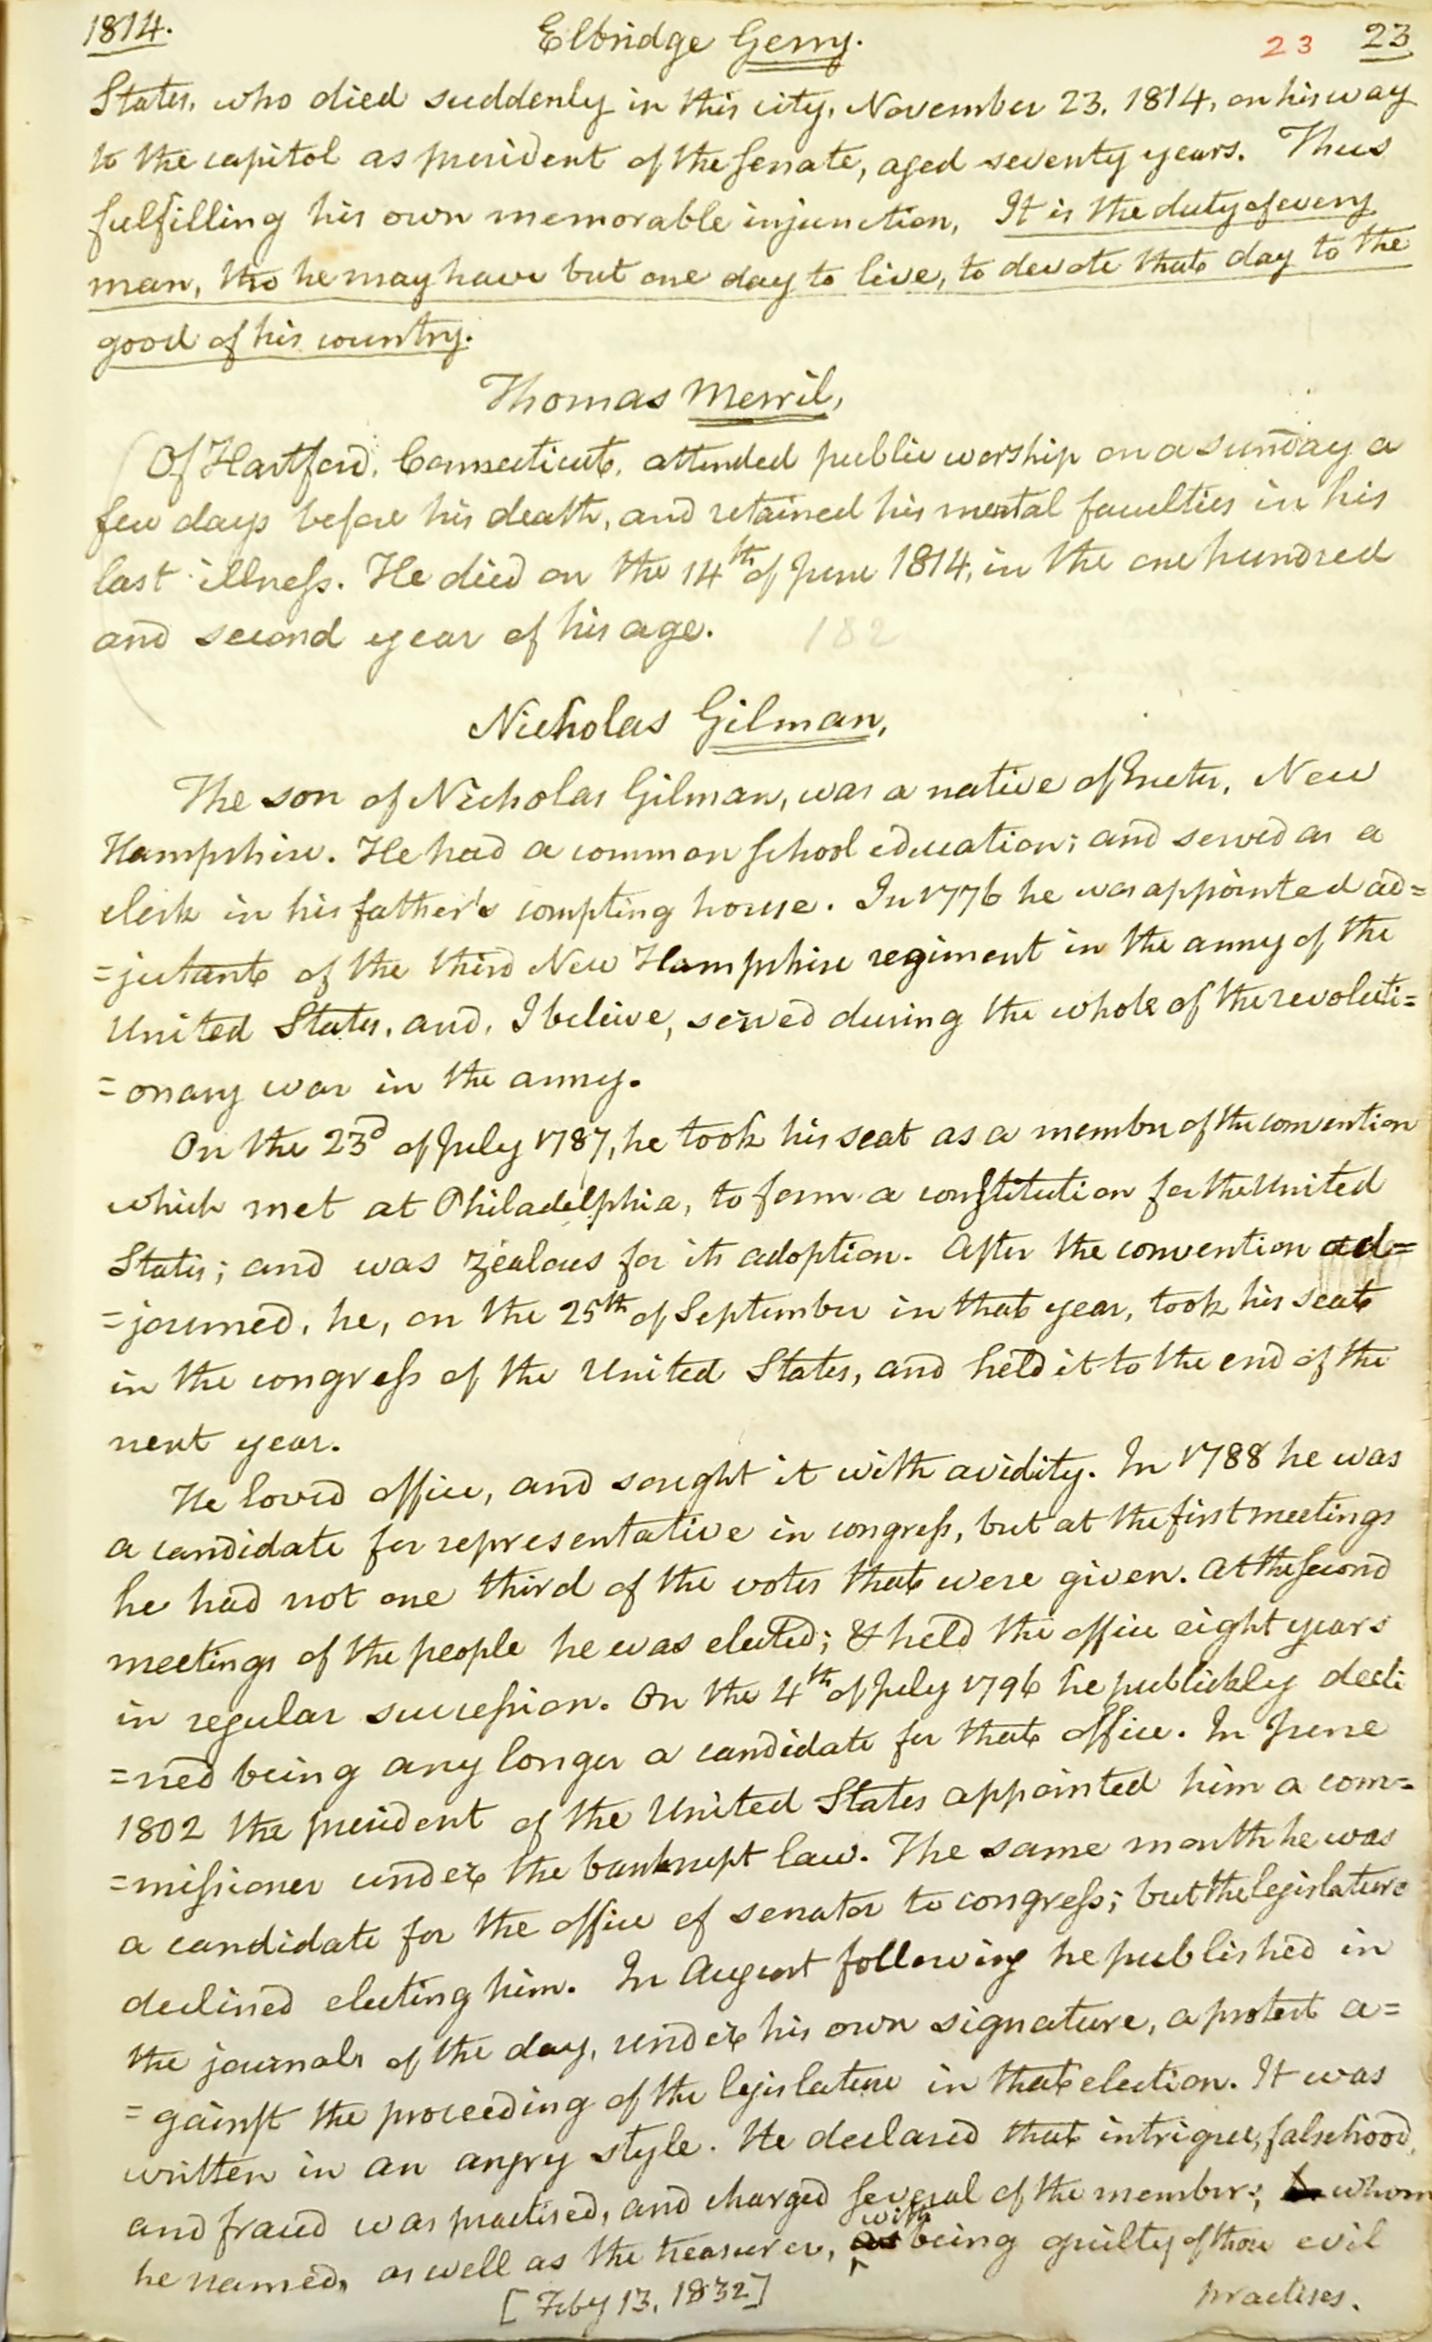 1814. Elbridge Gerry. 23 23
States, who died suddenly in this city, November 23. 1814, on his way
to the capitol as president of the senate, aged seventy years. Thus
fulfilling his own memorable injunction, It is the duty of every
man, tho he may have but one day to live, to devote that day to the
good of his country.
Thomas Merril,
Of Hartford, Connecticut, attended public worship on a sunday a
few days before his death, and retained his mental faculties in his
last illness. He died on the 14th of June 1814, in the one hundred
and second year of his age. 182
Nicholas Gilman,
The son of Nicholas Gilman, was a native of Exeter, New
Hampshire. He had a common school education; and served as a
clerk in his father's compting house. In 1776 he was appointed ad=
=jutant of the third New Hampshire regiment in the army of the
United States, and, I believe, served during the whole of the revoluti=
=onary war in the army.
On the 23d of July 1787, he took his seat as a member of the convention
which met at Philadelphia, to form a constitution for the United
States; and was zealous for its adoption. After the convention ad=
=journed, he, on the 25th of September in that year, took his seat
in the congress of the United States, and held it to the end of the
next year.
He loved office, and sought it with avidity. In 1788 he was
a candidate for representative in congress, but at the first meetings
he had not one third of the votes that were given. At the second
meetings of the people he was elected; & held the office eight years
in regular succession. On the 4th of July 1796 he publickly decli
=ned being any longer a candidate for that office. In June
1802 the president of the United States appointed him a com=
=missioner under the bankrupt law. The same month he was
a candidate for the office of senator to congress; but the legislature
declined electing him. In August following he published in
the journals of the day, under his own signature, a protest a=
=gainst the proceeding of the legislature in that election. It was
written in an angry style. He declared that intrigue, falsehood,
and fraud was practised, and charged several of the members, whom
he named, as well as the treasurer, as with being guilty of those evil
[Feby 13, 1832] practises.